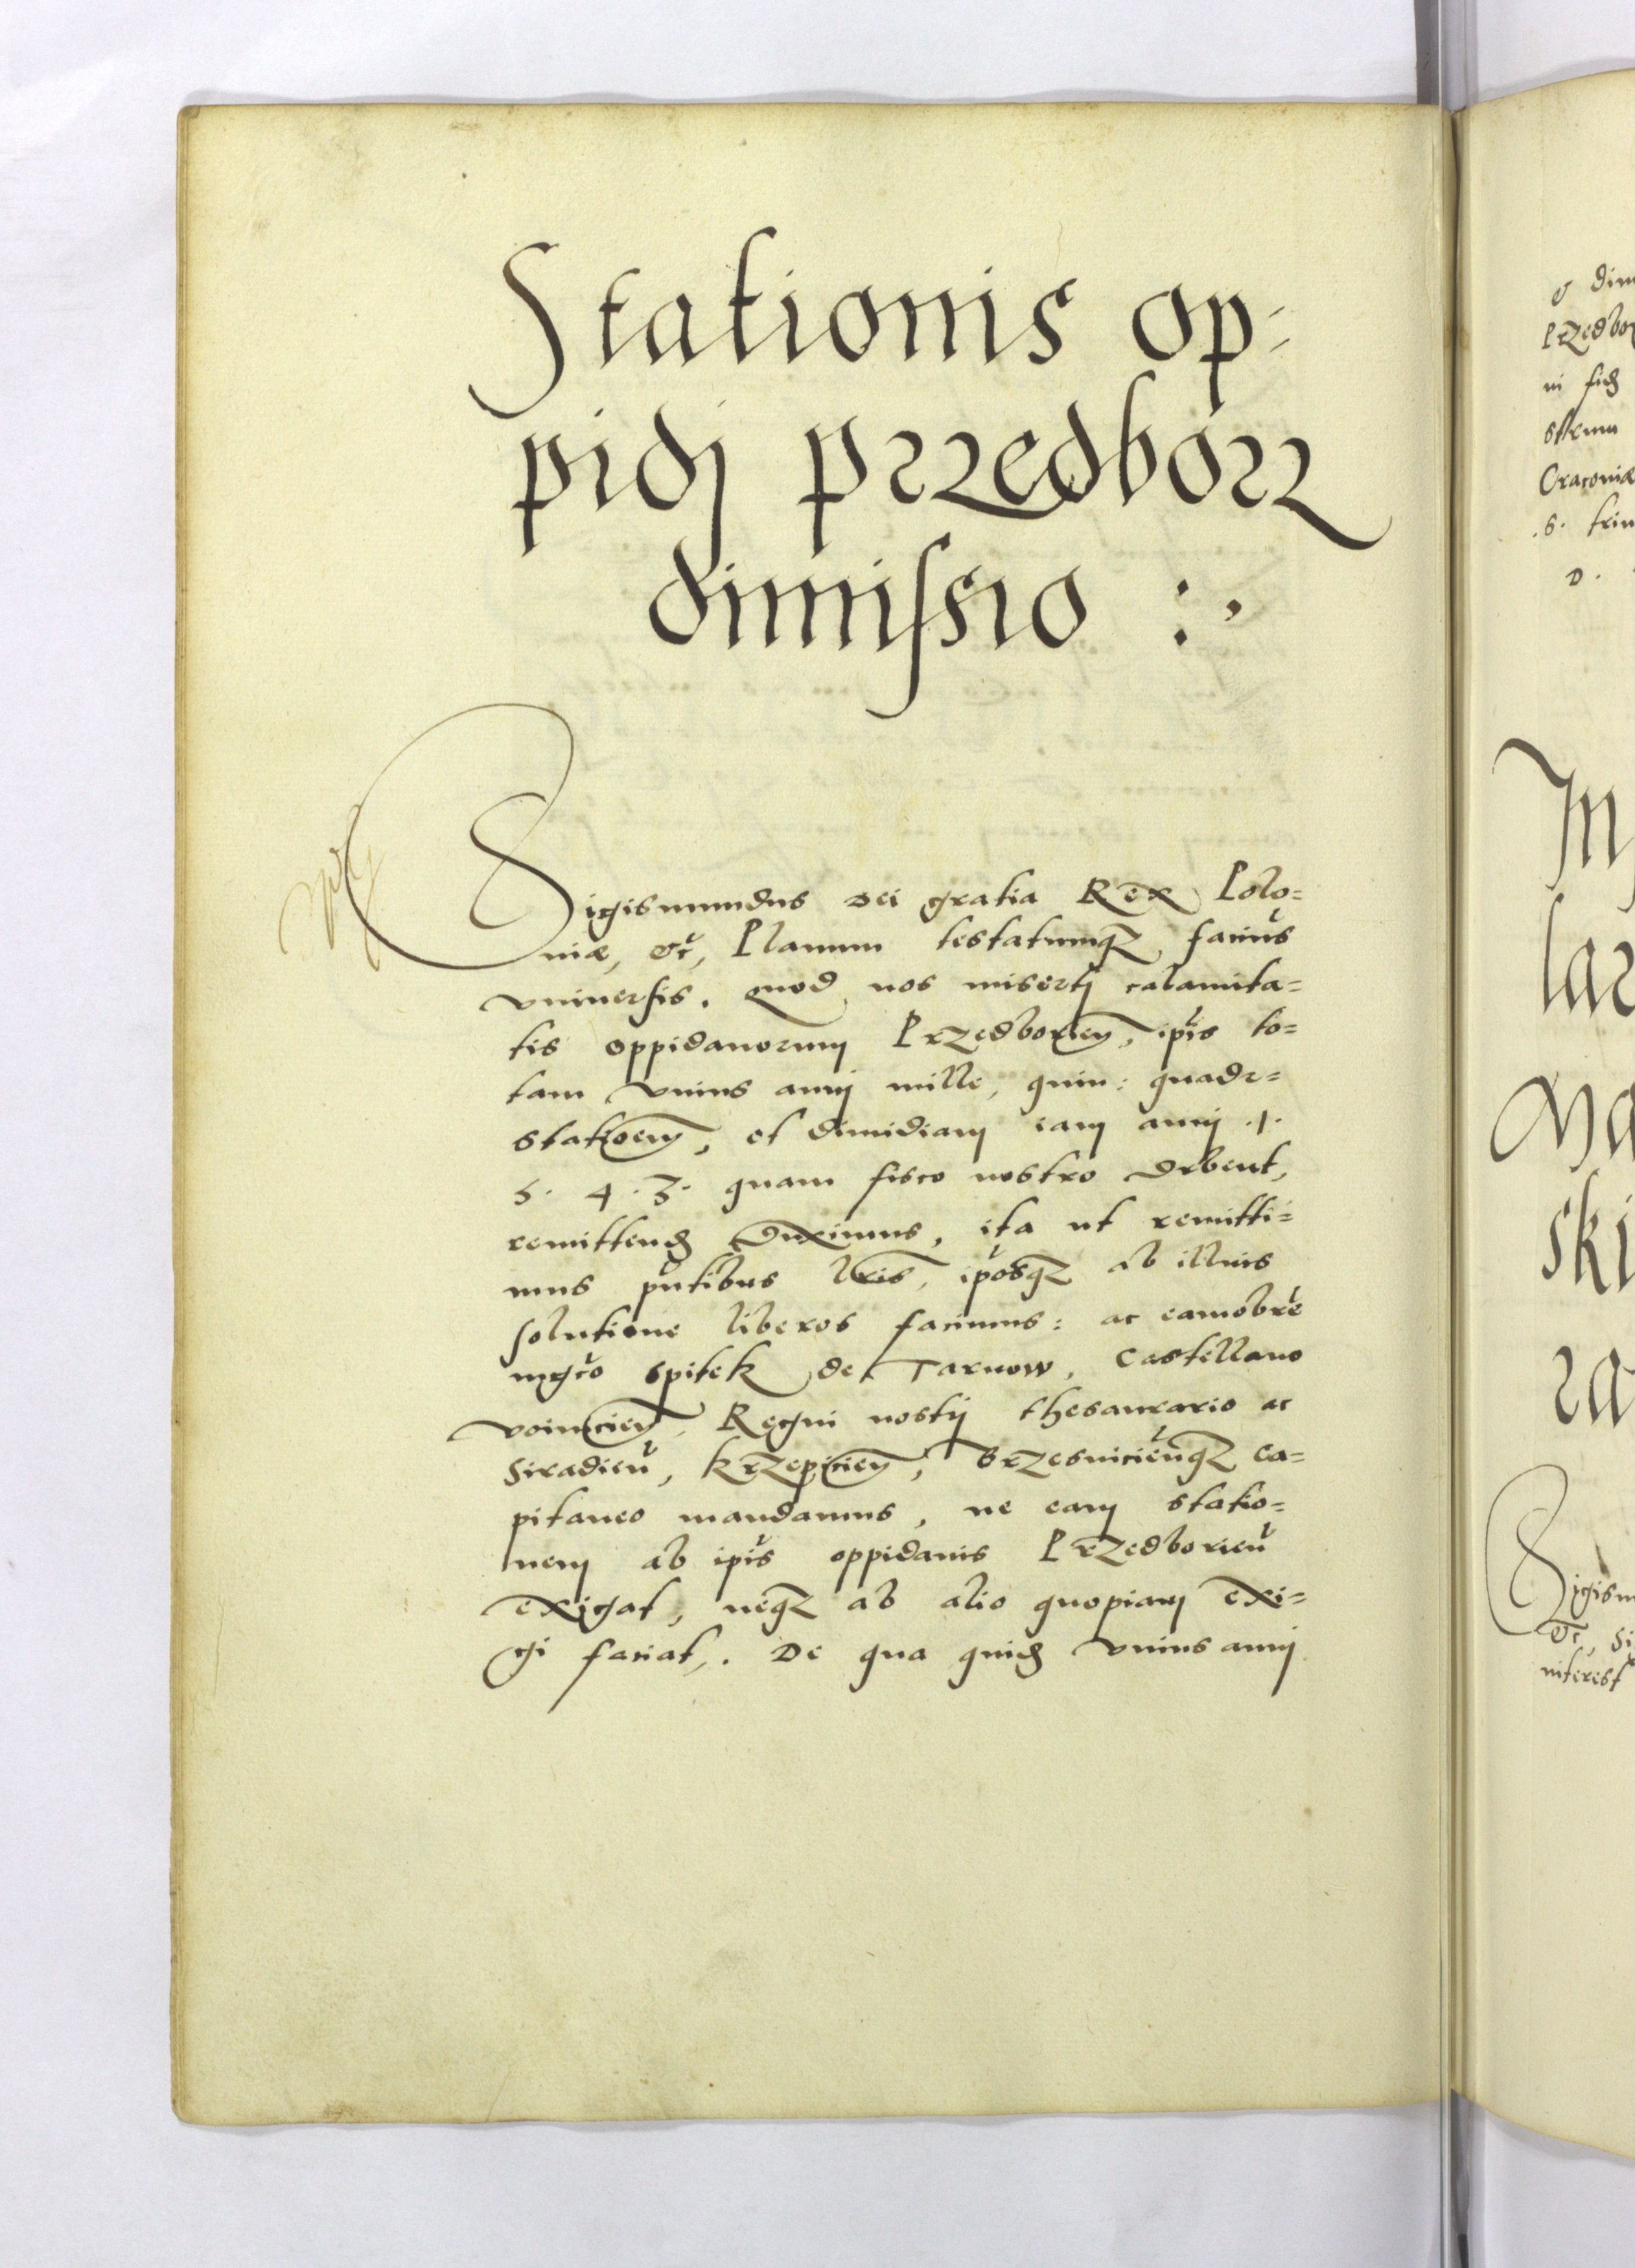 Stationis op-
pidj przedborz
dimissio :,
Sigismundus Dei gratia Rex Polo=
niæ, &c̃, Planum testatumq₃ facimus
vniuersis. Quod nos misertj calamita=
tis oppidanorum Przedborień, ip̃is to=
tam vnius annj mille, quin: quadr=
statioem̃, et dimidiam iam annj .1.
5. 4. 3. quam fisco nostro debent,
remittend duximus, ita ut remitti=
mus pñtibus lr̃is, ip̃osq₃ ab illius
solutione liberos facimus: ac eamobrẽ
mgc̃o Spitek de Tarnow, Castellano
voinicień, Regni nostrj thesaurario ac
Siradień, Krzepicień, Brzesnicieñq₃ ca=
pitaneo mandamus, ne eam statio=
nem ab ip̃is oppidanis Przedborień
exigat, neq₃ ab alio quopiam exi=
gi faciat,. De qua quid vnius annj
& dim
Przedbor
ni fid
strum
Cracoviæ
.S. trin
D.
M
lar
Ma
ski
ra
Sigism
&c̃, Si
interest